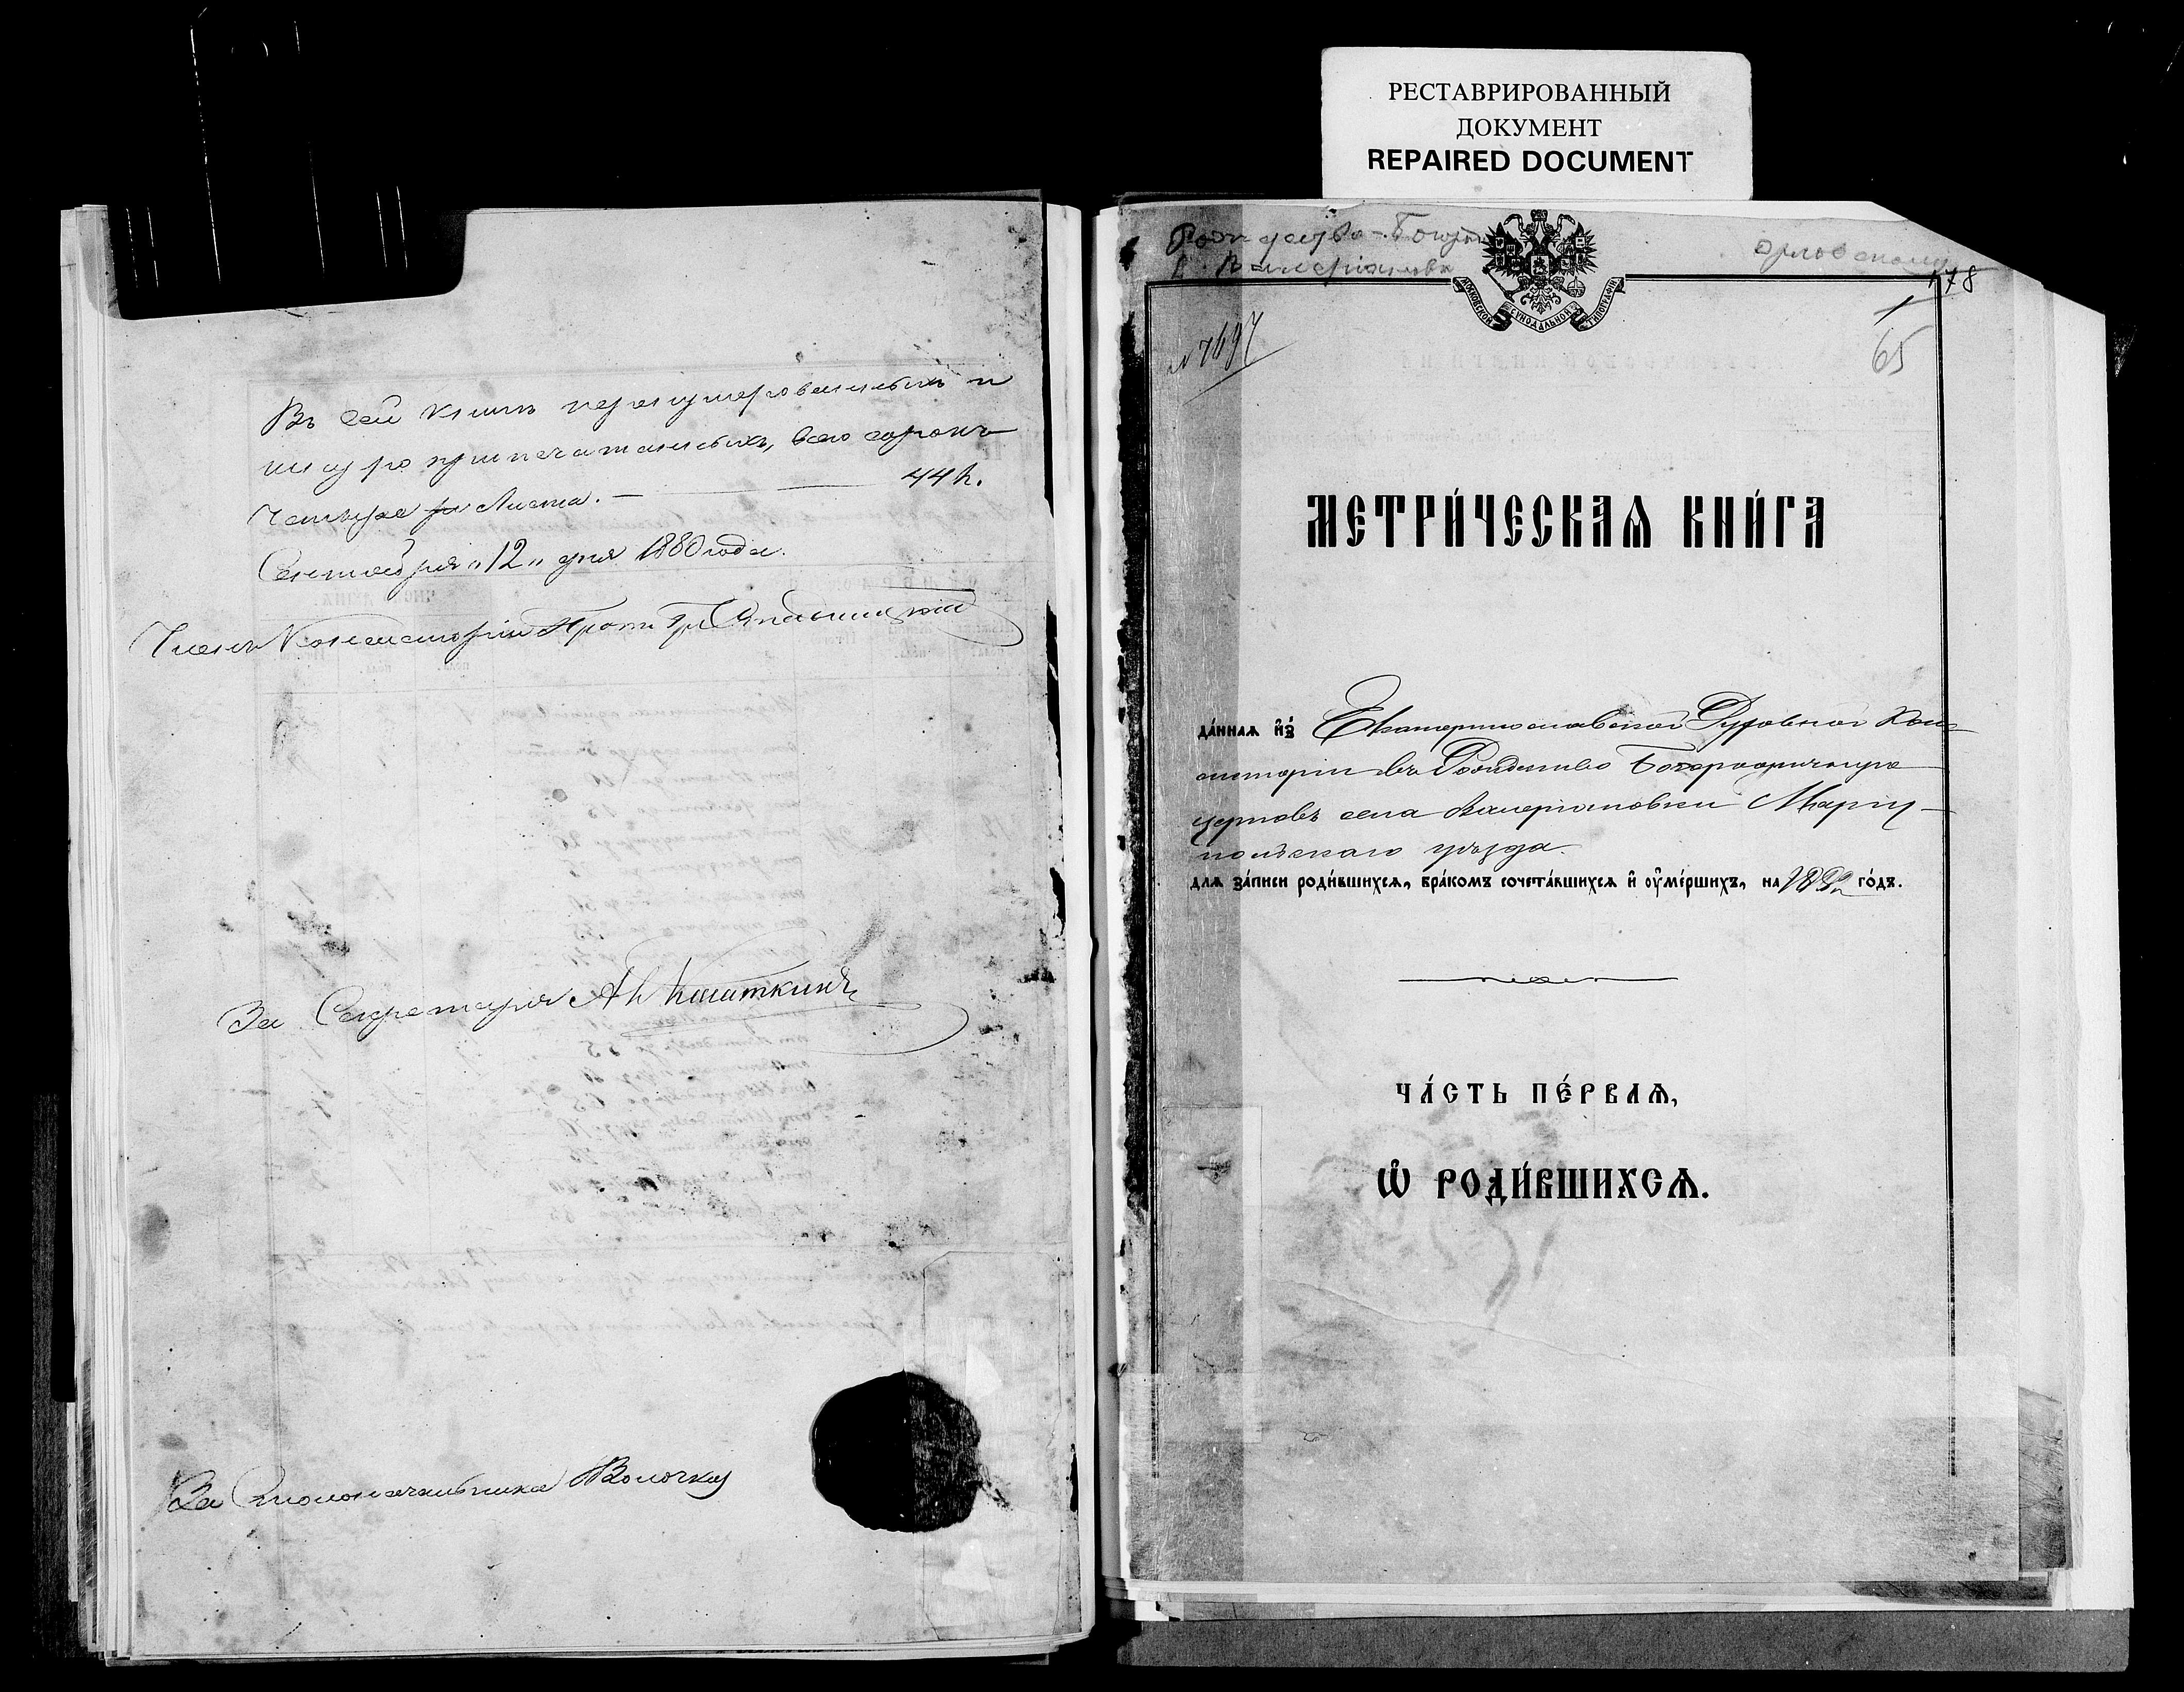 РЕСТАВРИРОВАННЫЙ
ДОКУМЕНТ
REPAIRED DOCUMENT
Въ сей книгѣ перенумерованныхъ и
шнуро припечатанныхъ, всего сорокъ
четыре Листа. — 44 л.
Сентября „12„ дня 1880 года.
Членъ Консисторіи Прот. Гр.
За Секретаря
За Столоначальника Волочкој
Рождества-Богор
с. Валеріановка
орловскому
178
65
№ 7697
МОСКОВСКОЙ СѴНОДАЛЬНОЙ ТИПОГРАФІИ
МЕТРИ́ЧЕСКАѦ КНИ́ГА
да́ннаѧ и҆з̾ Екатеринославской Духовной Кон-
систоріи въ Рождество Богородичную
церковь села Валеріановки Мариу-
польскаго уѣзда.
длѧ за́писи роди́вшихсѧ, бра́комъ сочета́вшихсѧ и҆ ᲂу҆ме́ршихъ, на го́дъ.
ЧА́СТЬ ПЕ́РВАѦ,
Ѽ РОДИ́ВШИХСѦ.